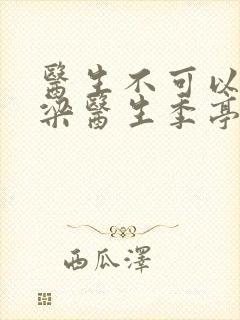 醫生不可以
梁醫生季亭
西瓜澤